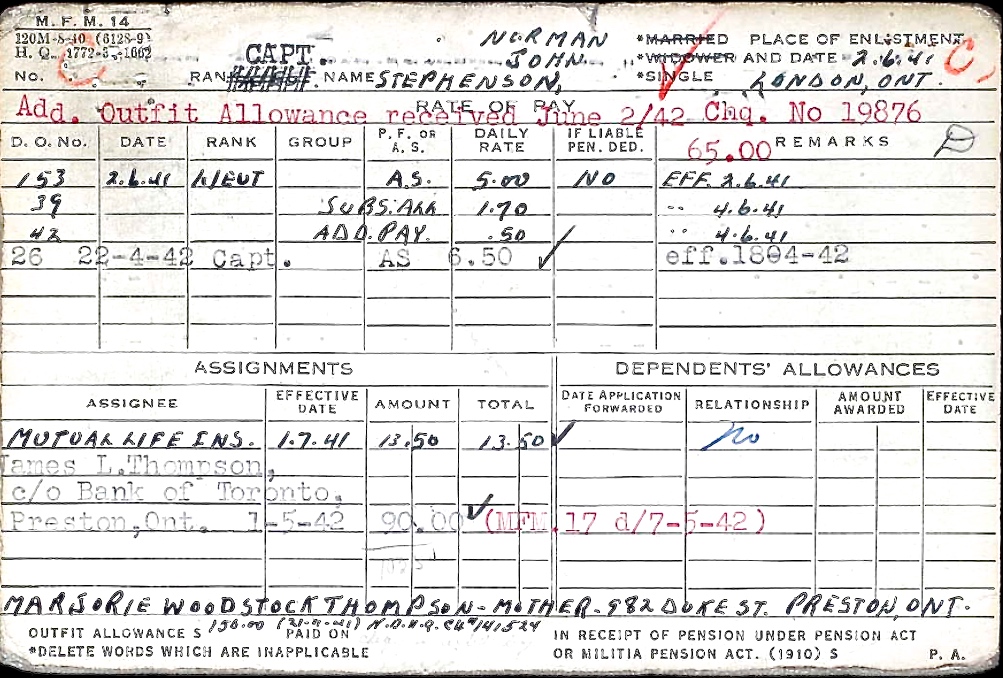 M. F. M. 14
120M-8-40 (6128-9)
H. Q. 1772-3 -1662
CAPT. NORMAN JOHN *MARRIED PLACE OF ENLISTMENT
*WIDOWER AND DATE 2.6.41
No. C RANK NAME STEPHENSON, *SINGLE LONDON, ONT. C
RATE OF PAY
Add. Outfit Allowance received June 2/42 Chq. No 19876
D. O. No. DATE RANK GROUP P. F. OR A. S. DAILY RATE IF LIABLE PEN. DED. 65.00 REMARKS
153 2.6.41 LIEUT A.S. 5.00 NO EFF. 2.6.41
39 SUBS. ALL 1.70 " 4.6.41
42 ADD. PAY. .50 " 4.6.41
26 22-4-42 Capt. AS 6.50 eff.1804-42
ASSIGNMENTS DEPENDENTS' ALLOWANCES
ASSIGNEE EFFECTIVE DATE AMOUNT TOTAL DATE APPLICATION FORWARDED RELATIONSHIP AMOUNT AWARDED EFFECTIVE DATE
MUTUAL LIFE INS. 1.7.41 13.50 13.50 No
James L.Thompson,
c/o Bank of Toronto.
Preston,Ont. 1-5-42 90.00 (MFM.17 d/7-5-42)
MARJORIE WOODSTOCK THOMPSON - MOTHER - 982 DUKE ST. PRESTON, ONT.
OUTFIT ALLOWANCE $ 150.00 PAID ON N.D.H.Q. CH# 141524 IN RECEIPT OF PENSION UNDER PENSION ACT
*DELETE WORDS WHICH ARE INAPPLICABLE OR MILITIA PENSION ACT. (1910) $ P. A.